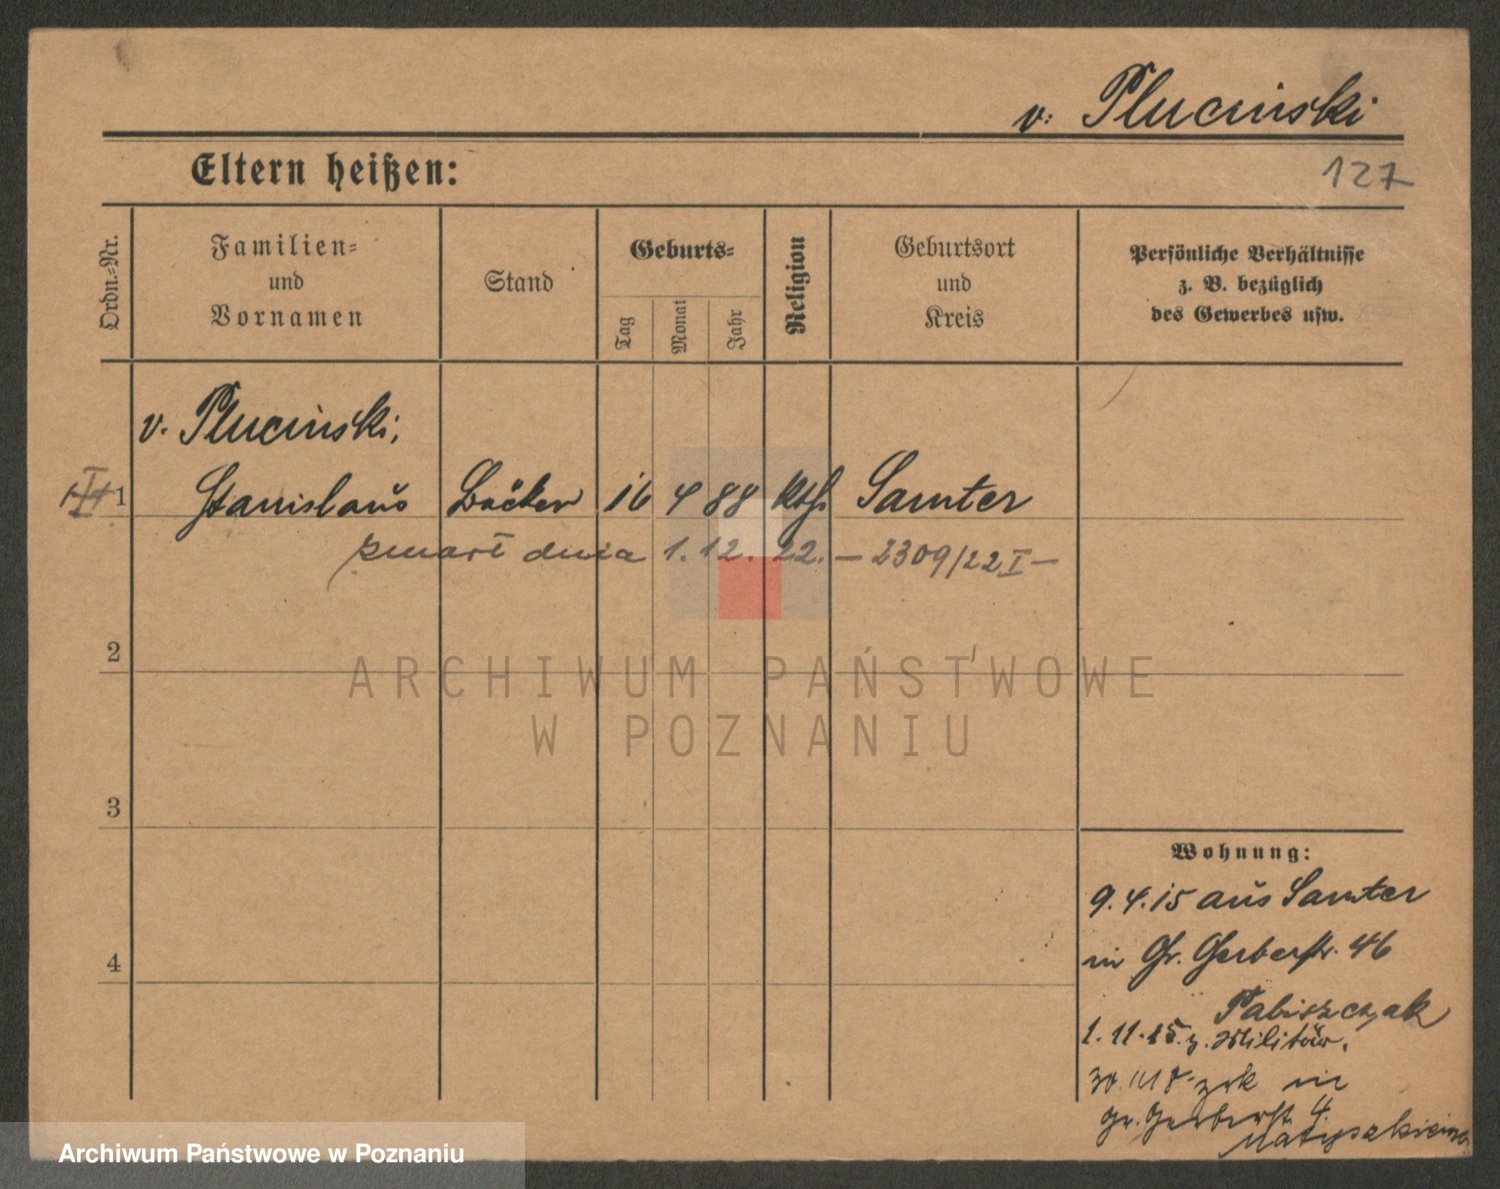 v. Plucinski
Eltern heißen:
127
Ordn.-Nr.
Familien-
und
Vornamen
Stand
Geburts-
Tag
Monat
Jahr
Religion
Geburtsort
und
Kreis
Persönliche Verhältnisse
z. B. bezüglich
des Gewerbes usw.
v. Plucinski,
1 Stanislaus Bäcker 16 4 88 kth. Samter
zmarł dnia 1.12.22. — 2309/22 I —
2
ARCHIWUM PAŃSTWOWE
W POZNANIU
3
Wohnung:
9.4.15 aus Samter
in Gr. Gerberstr. 46
4
Pabiszczak
1.11.15. z. Militär.
zrk in
Gr. Gerberst. 4.
Archiwum Państwowe w Poznaniu